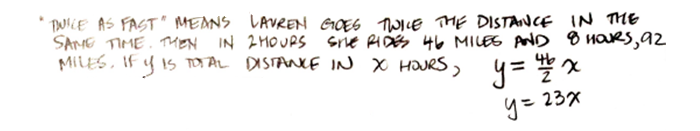 "TWICE AS FAST" MEANS LAUREN GOES TWICE THE DISTANCE IN THE
SAME TIME. THEN IN 2 HOURS SHE RIDES 46 MILES AND 8 HOURS, 92
MILES. IF y IS TOTAL DISTANCE IN X HOURS, y = 46/2 x
y = 23x